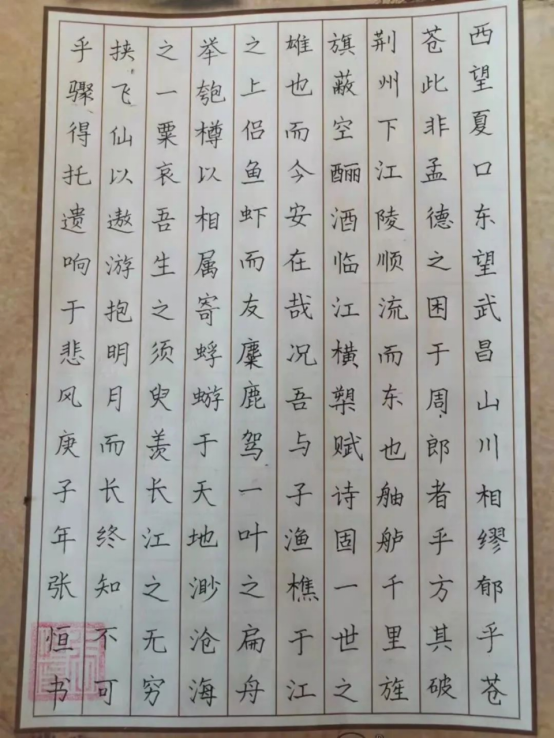 西望夏口东望武昌山川相缪郁乎苍
苍此非孟德之困于周郎者乎方其破
荆州下江陵顺流而东也舳舻千里旌
旗蔽空酾酒临江横槊赋诗固一世之
雄也而今安在哉况吾与子渔樵于江
之上侣鱼虾而友麋鹿驾一叶之扁舟
举匏樽以相属寄蜉蝣于天地渺沧海
之一粟哀吾生之须臾羡长江之无穷
挟飞仙以遨游抱明月而长终知不可
乎骤得托遗响于悲风庚子年张恒书